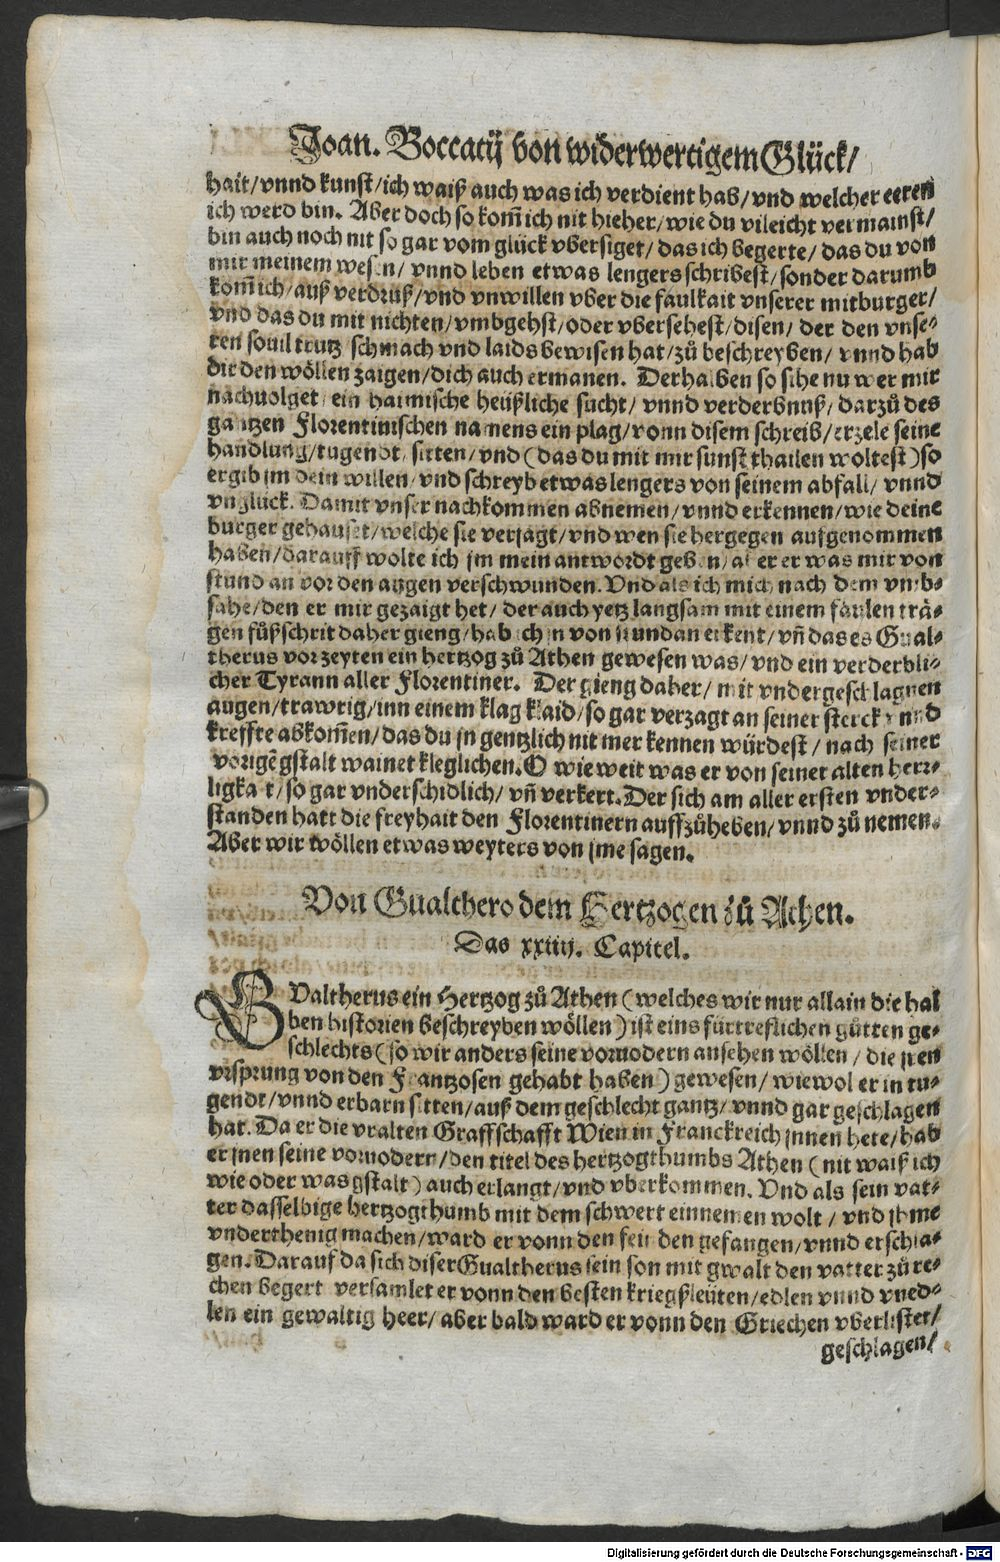 Joan. Boccatij von widerwertigem Glück/
hait/vnnd kunst/ich waiß auch was ich verdient hab/vnd welcher eeren
ich werd bin. Aber doch so kom̄ ich nit hieher/wie du vileicht vermainst/
bin auch noch nit so gar vom glück vbersiget/das ich begerte/das du von
mir meinem wesen/vnnd leben etwas lengers schribest/sonder darumb
kom̄ ich/auß verdruß/vnd vnwillen vber die faulkait vnserer mitburger/
vnd das du mit nichten/vmbgehst/oder vbersehest/disen/der den vnse⸗
ren souil trutz schmach vnd laids bewisen hat/zů beschreyben/vnnd hab
dir den wöllen zaigen/dich auch ermanen. Derhalben so sihe nu wer mir
nachuolget ein haimische heüßliche sucht/vnnd verderbnuß/darzů des
gantzen Florentinischen namens ein plag/vonn disem schreib/erzele seine
handlung/tugendt/sitten/vnd (das du mit mir sunst thailen woltest) so
ergib jm dein willen/vnd schreyb etwas lengers von seinem abfall/vnnd
vnglück. Damit vnser nachkommen abnemen/vnnd erkennen/wie deine
burger gehauset/welche sie verjagt/vnd wen sie hergegen aufgenommen
haben/darauff wolte ich jm mein antwordt geben/aber er was mir von
stund an vor den augen verschwunden. Vnd als ich mich nach dem vmb⸗
sahe/den er mir gezaigt het/der auch yetz langsam mit einem faulen trä⸗
gen fůßschrit daher gieng/hab ich jn von stundan erkent/vn̄ das es Gual⸗
therus vorzeyten ein hertzog zů Athen gewesen was/vnd ein verderbli⸗
cher Tyrann aller Florentiner. Der gieng daher/mit vndergeschlagnen
augen/trawrig/inn einem klag klaid/so gar verzagt an seiner sterck vnnd
kreffte abkom̄en/das du jn gentzlich nit mer kennen würdest/nach seiner
vorigē gstalt wainet kleglichen. O wie weit was er von seiner alten herr⸗
ligkait/so gar vnderschidlich/vn̄ verkert. Der sich am aller ersten vnder⸗
standen hatt die freyhait den Florentinern auffzůheben/vnnd zů nemen.
Aber wir wöllen etwas weyters von jme sagen.
Von Gualthero dem Hertzogen zů Athen.
Das xxiiij. Capitel.
GValtherus ein Hertzog zů Athen (welches wir nur allain die hal
ben historien beschreyben wöllen) ist eins fürtreflichen gůtten ge⸗
schlechts (so wir anders seine vorvodern ansehen wöllen/die jren
vrsprung von den Frantzosen gehabt haben) gewesen/wiewol er in tu⸗
gendt/vnnd erbarn sitten/auß dem geschlecht gantz/vnnd gar geschlagen
hat. Da er die vralten Graffschafft Wien in Franckreich jnnen hete/hab
er jnen seine vorvodern/den titel des hertzogthumbs Athen (nit waiß ich
wie oder was gstalt) auch erlangt/vnd vberkommen. Vnd als sein vat⸗
ter dasselbige hertzogthumb mit dem schwert einnemen wolt/vnd jhme
vnderthenig machen/ward er vonn den feinden gefangen/vnnd erschla⸗
gen. Darauf da sich diser Gualtherus sein son mit gwalt den vatter zů re⸗
chen begert versamlet er vonn den besten kriegßleüten/edlen vnnd vned⸗
len ein gewaltig heer/aber bald ward er vonn den Griechen vberlistet/
geschlagen/
Digitalisierung gefördert durch die Deutsche Forschungsgemeinschaft - DFG